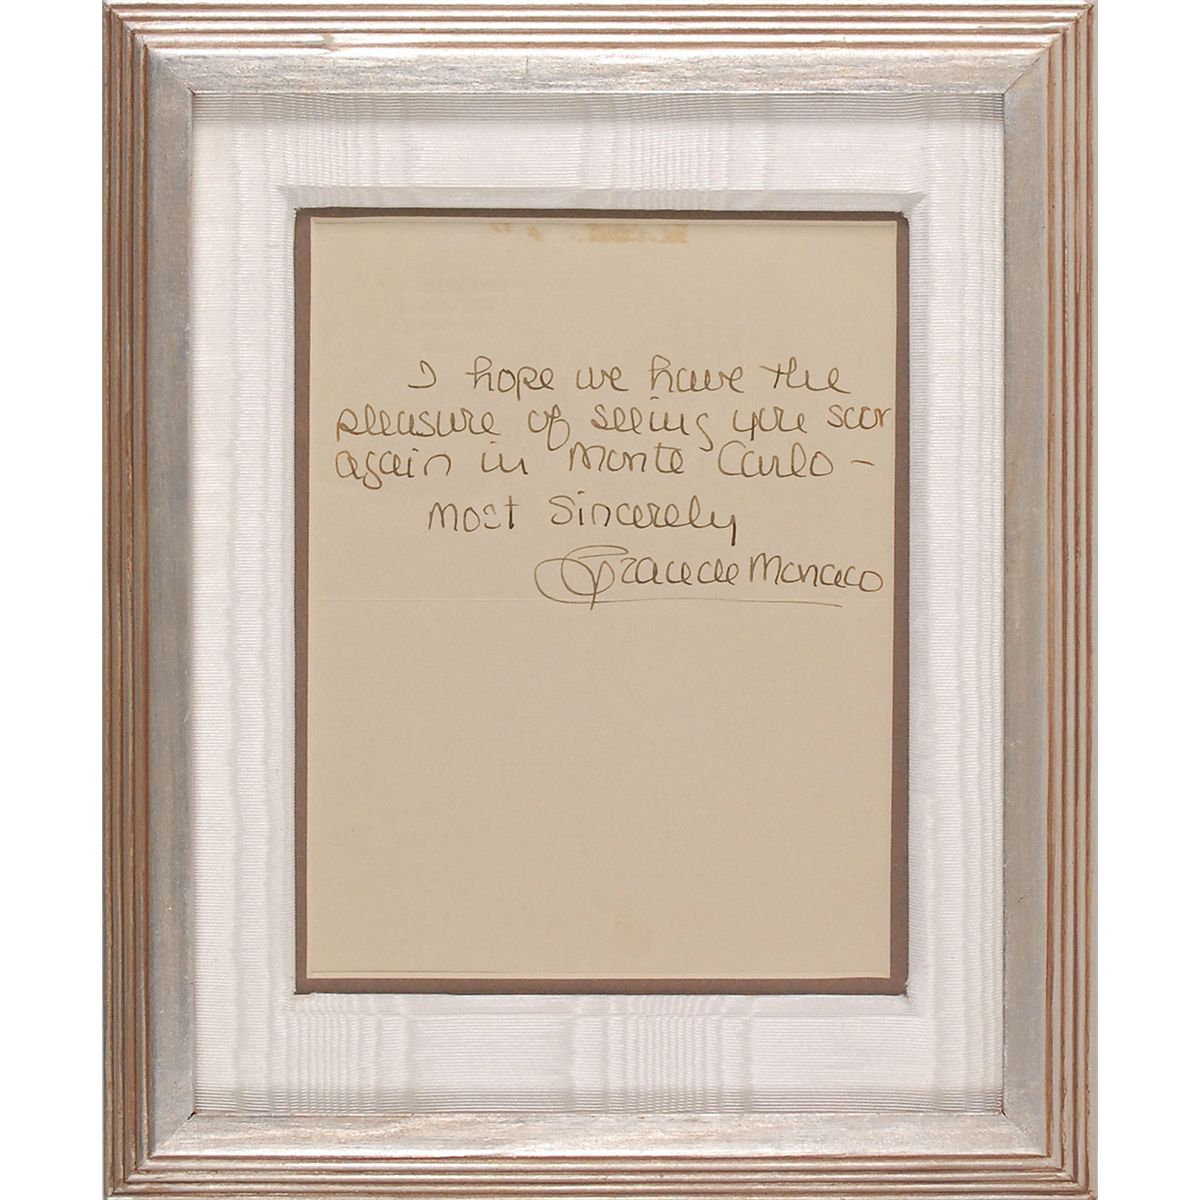 I hope we have the
pleasure of seeing you soon
again in Monte Carlo –
most sincerely
Grace de Monaco